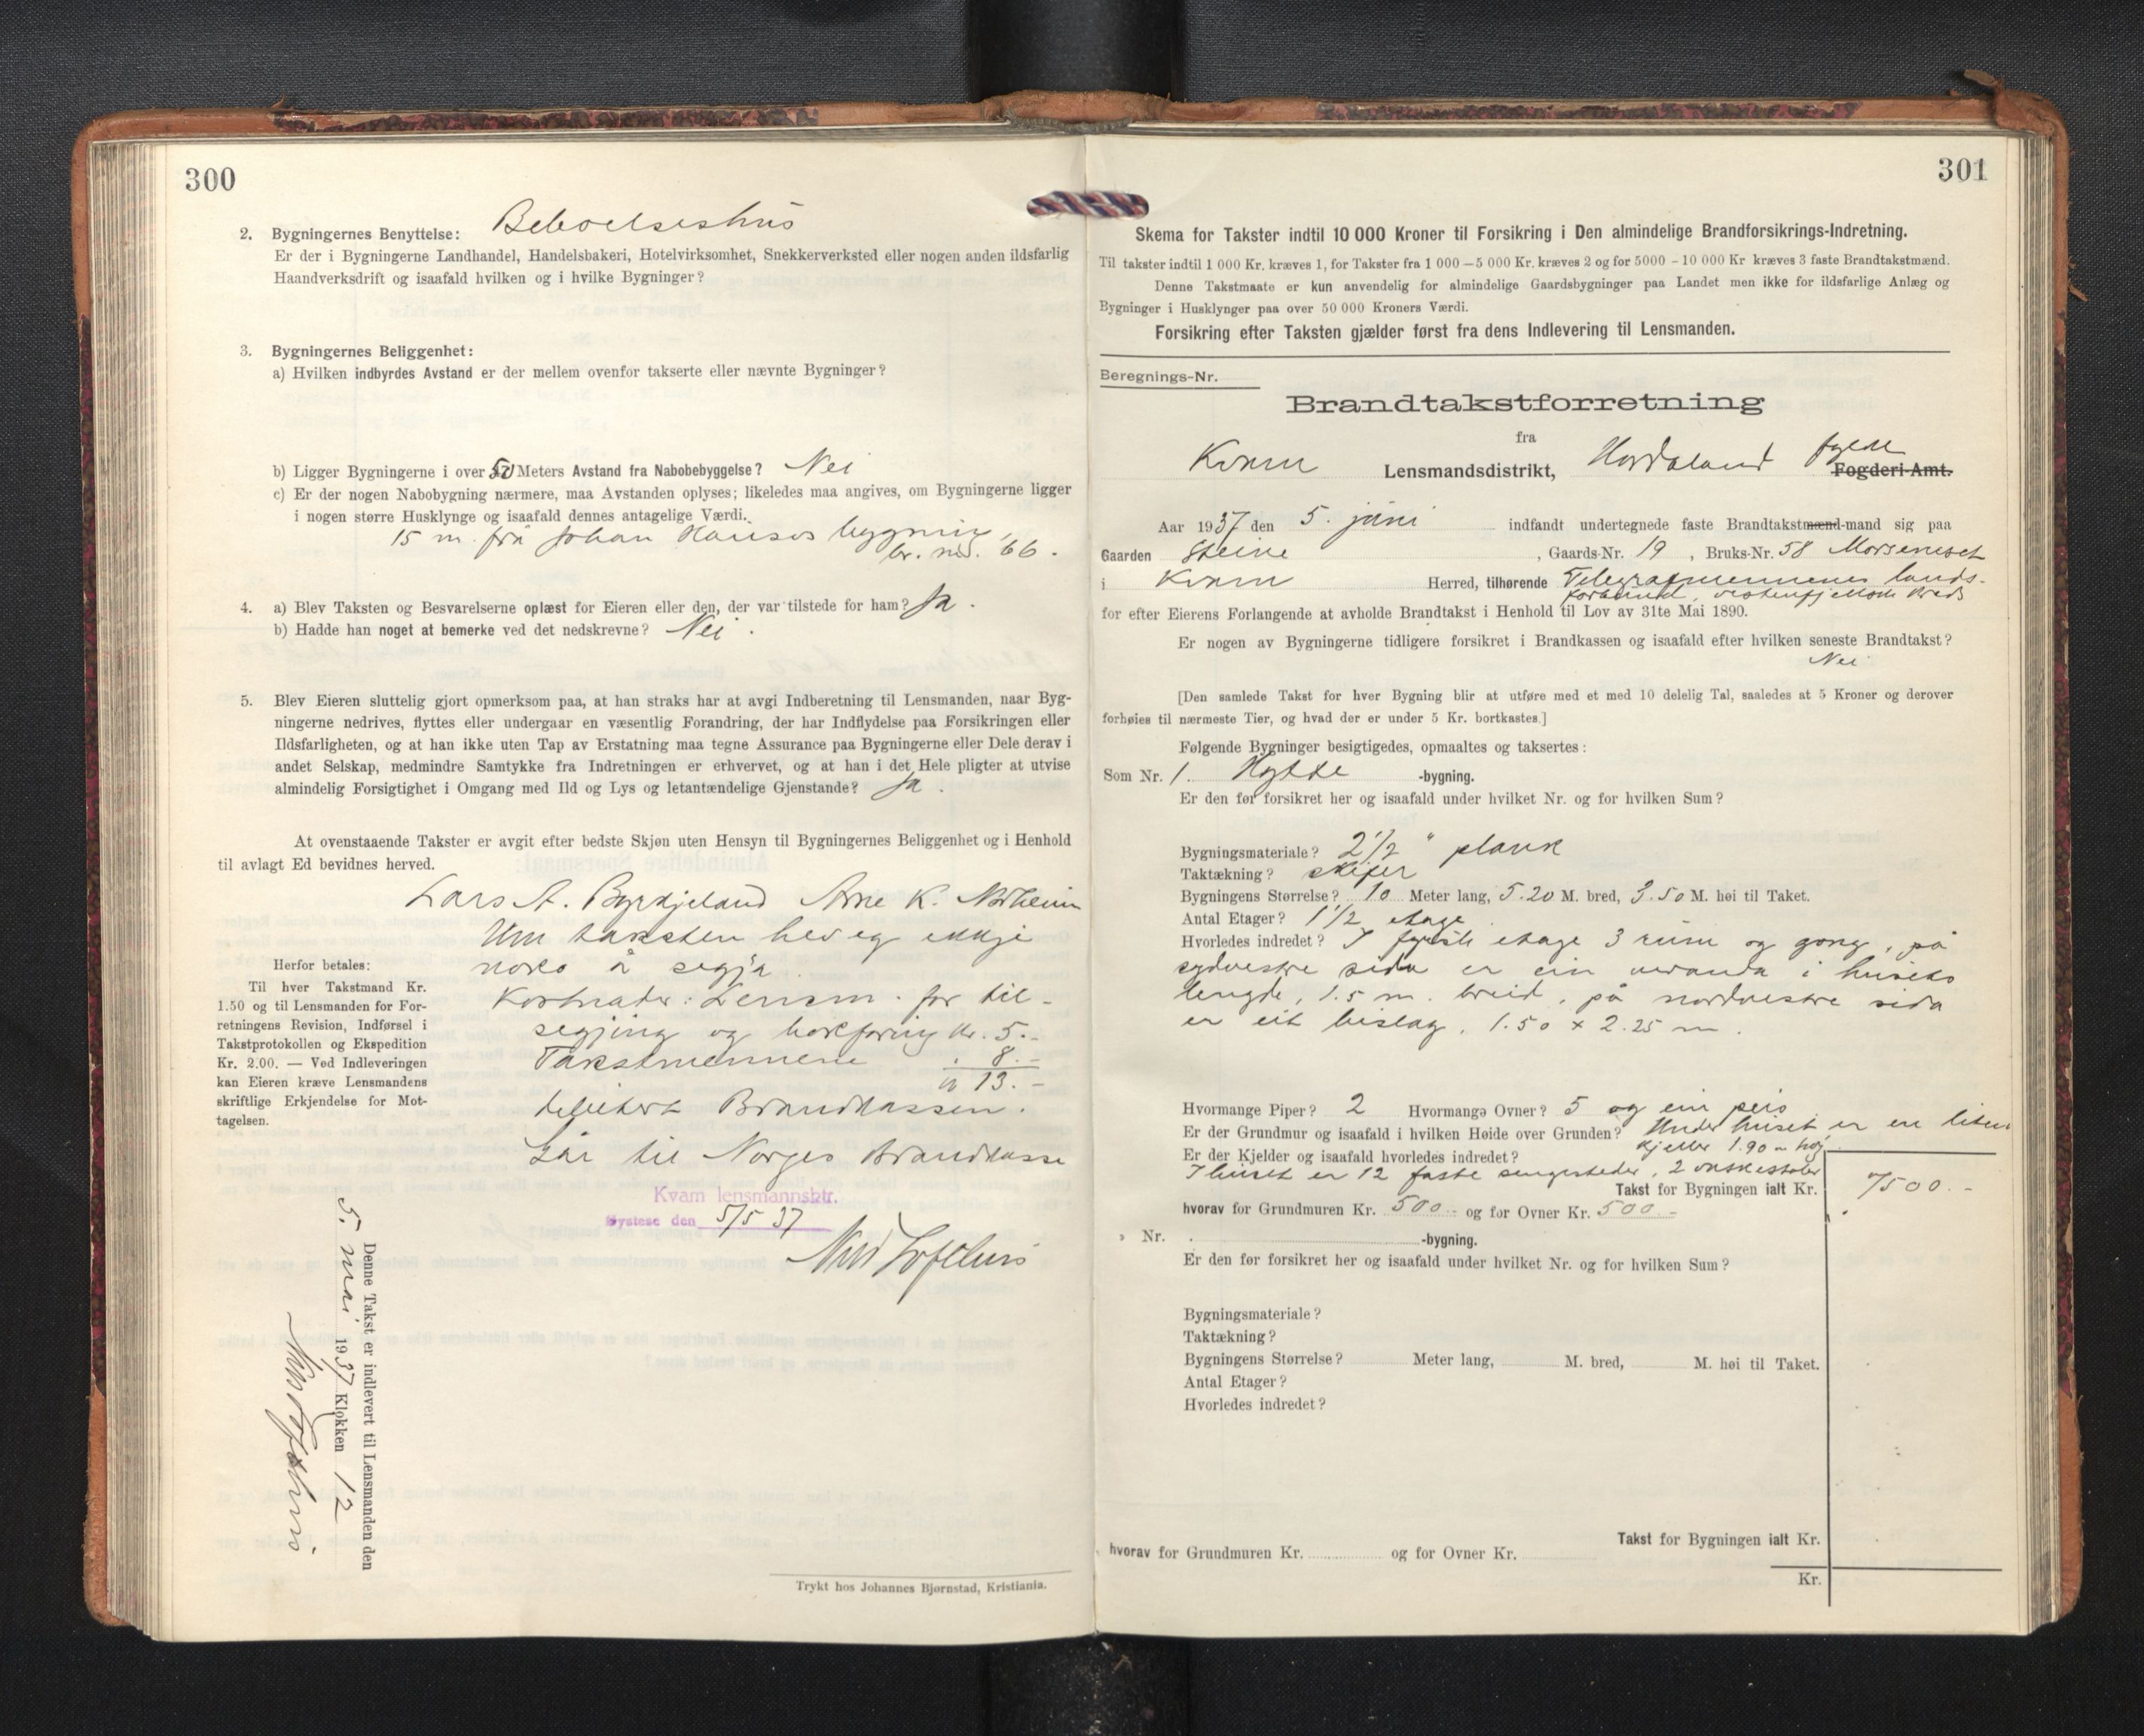 300
2. Bygningernes Benyttelse: Beboelseshus
Er der i Bygningerne Landhandel, Handelsbakeri, Hotelvirksomhet, Snekkerverksted eller nogen anden ildsfarlig
Haandverksdrift og isaafald hvilken og i hvilke Bygninger?
3. Bygningernes Beliggenhet:
a) Hvilken indbyrdes Avstand er der mellem ovenfor takserte eller nævnte Bygninger?
b) Ligger Bygningerne i over 50 Meters Avstand fra Nabobebyggelse? Nei
c) Er der nogen Nabobygning nærmere, maa Avstanden oplyses; likeledes maa angives, om Bygningerne ligger
i nogen større Husklynge og isaafald dennes antagelige Værdi.
15 m. frå Johan Hauses bygning,
br. nr. 66.
4. a) Blev Taksten og Besvarelserne oplæst for Eieren eller den, der var tilstede for ham? Ja.
b) Hadde han noget at bemerke ved det nedskrevne? Nei.
5. Blev Eieren sluttelig gjort opmerksom paa, at han straks har at avgi Indberetning til Lensmanden, naar Byg-
ningerne nedrives, flyttes eller undergaar en væsentlig Forandring, der har Indflydelse paa Forsikringen eller
Ildsfarligheten, og at han ikke uten Tap av Erstatning maa tegne Assurance paa Bygningerne eller Dele derav i
andet Selskap, medmindre Samtykke fra Indretningen er erhvervet, og at han i det Hele pligter at utvise
almindelig Forsigtighet i Omgang med Ild og Lys og letantændelige Gjenstande? Ja.
At ovenstaaende Takster er avgit efter bedste Skjøn uten Hensyn til Bygningernes Beliggenhet og i Henhold
til avlagt Ed bevidnes herved.
Lars A. Byrkjeland Arne K. Norheim
Um taksten hev eg ikkje
noko å segja.
Kostnader: Lensm. for til-
segjing og bokføring kr. 5.-
Takstmennene " 8.-
kr 13.-
debitert Brandkassen.
Går til Norges Brandkasse
Herfor betales:
Til hver Takstmand Kr.
1.50 og til Lensmanden for For-
retningens Revision, Indførsel i
Takstprotokollen og Ekspedition
Kr. 2.00. — Ved Indleveringen
kan Eieren kræve Lensmandens
skriftlige Erkjendelse for Mot-
tagelsen.
Kvam lensmannsktr.
Øystese den 5/5 37
Nils Lofthus
Denne Takst er indlevert til Lensmanden den
5. mai 1937 Klokken 12
Nils Lofthus
Trykt hos Johannes Bjørnstad, Kristiania.
301
Skema for Takster indtil 10 000 Kroner til Forsikring i Den almindelige Brandforsikrings-Indretning.
Til takster indtil 1 000 Kr. kræves 1, for Takster fra 1 000 — 5 000 Kr. kræves 2 og for 5000 - 10 000 Kr kræves 3 faste Brandtakstmænd.
Denne Takstmaate er kun anvendelig for almindelige Gaardsbygninger paa Landet men ikke for ildsfarlige Anlæg og
Bygninger i Husklynger paa over 50 000 Kroners Værdi.
Forsikring efter Taksten gjælder først fra dens Indlevering til Lensmanden.
Beregnings-Nr.
Brandtakstforretning
fra
Kvam Lensmandsdistrikt, Hordaland fylde Fogderi Amt.
Aar 1937 den 5. juni indfandt undertegnede faste Brandtakstmænd-mand sig paa
Gaarden Steine, Gaards-Nr. 19, Bruks-Nr. 58 Morseneset
i Kvam Herred, tilhørende Telegrafmennenes lands-
forbund, vestenfjellske kreds
for efter Eierens Forlangende at avholde Brandtakst i Henhold til Lov av 31te Mai 1890.
Er nogen av Bygningerne tidligere forsikret i Brandkassen og isaafald efter hvilken seneste Brandtakst?
Nei
[Den samlede Takst for hver Bygning blir at utføre med et med 10 delelig Tal, saaledes at 5 Kroner og derover
forhøies til nærmeste Tier, og hvad der er under 5 Kr. bortkastes.]
Følgende Bygninger besigtigedes, opmaaltes og taksertes:
Som Nr. 1. Hytte -bygning.
Er den før forsikret her og isaafald under hvilket Nr. og for hvilken Sum?
Bygningsmateriale? 2 1/2 " plank
Taktækning? skifer
Bygningens Størrelse? 10 Meter lang, 5.20 M. bred, 3.50 M. høi til Taket.
Antal Etager? 1 1/2 etage.
Hvorledes indredet? I fyrste etage 3 rum og gong, på
sydvestre sida er ein veranda i husets
lengde, 1.5 m. breid, på nordvestre sida
er eit bislag, 1.50 x 2.25 m.
Hvormange Piper? 2 Hvormange Ovner? 5 og ein peis
Er der Grundmur og isaafald i hvilken Høide over Grunden? Under huset er en liten
Er der Kjelder og isaafald hvorledes indredet? kjeller 1.90 m høg.
I huset er 12 faste sengesteder, 2
Takst for Bygningen ialt Kr. 7500.-
hvorav for Grundmuren Kr. 500.- og for Ovner Kr. 500.-
» Nr. -bygning.
Er den før forsikret her og isaafald under hvilket Nr. og for hvilken Sum?
Bygningsmateriale?
Taktækning?
Bygningens Størrelse? Meter lang, M. bred, M. høi til Taket.
Antal Etager?
Hvorledes indredet?
Takst for Bygningen ialt Kr.
hvorav for Grundmuren Kr. og for Ovner Kr.
Kr.